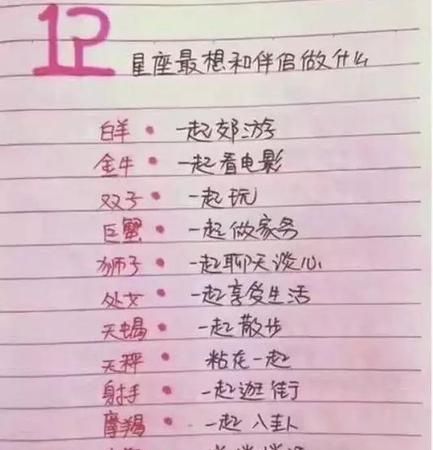 12星座最想和伴侣做什么
白羊·一起郊游
金牛·一起看电影
双子·一起玩
巨蟹·一起做家务
狮子·一起聊天谈心
处女·一起享受生活
天蝎·一起散步
天秤·粘在一起
射手·一起逛街
摩羯·一起八卦